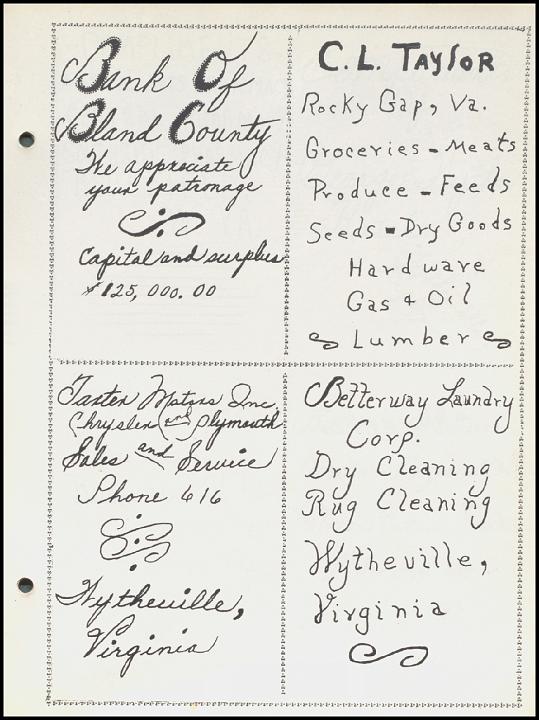 Bank Of
Bland County
We approciate
your patronage
Capital and surplus
$125,000.00
C.L. Taylor
Rocky Gap, Va.
Groceries - Meats
Produce - Feeds
Seeds - Dry Goods
Hardware
Gas & Oil
Lumber
Tarter Motors Inc.
Chrysler and Plymouth
Sales and Service
Phone 616
Wytheville,
Virginia
Betterway Laundry
Corp.
Dry Cleaning
Rug Cleaning
Wytheville,
Virginia